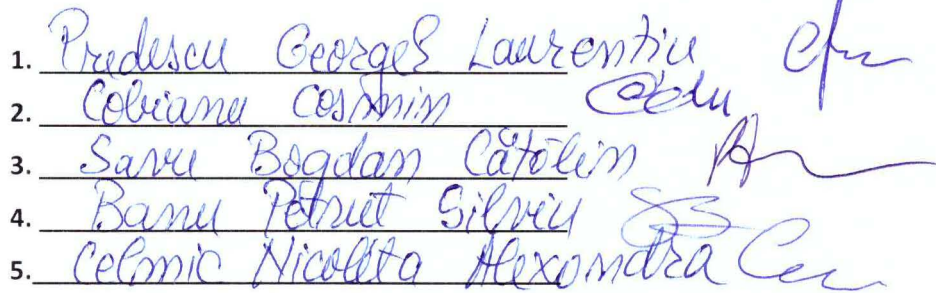 1. Predescu George Laurentiu
2. Cobianu Cosmin
3. Savu Bogdan Cătălin
4. Banu Petrut Silviu
5. Celmic Nicoleta Alexandra